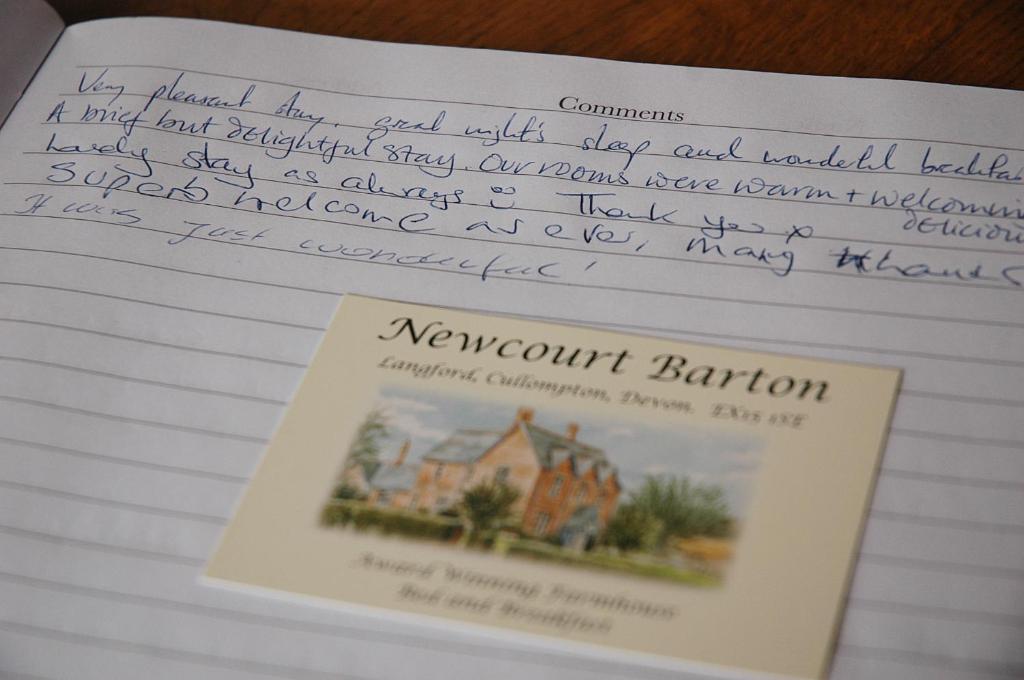 Comments
Very pleasant stay. great night's sleep and wonderful breakfas
A brief but delightful stay. Our rooms were warm + welcomin
delicious
Lovely stay as always Thank you x
Superb welcome as ever, many thanks
It was just wonderful!
Newcourt Barton
Langford, Cullompton, Devon. EX15 1SE
Award Winning Farmhouse
Bed and Breakfast